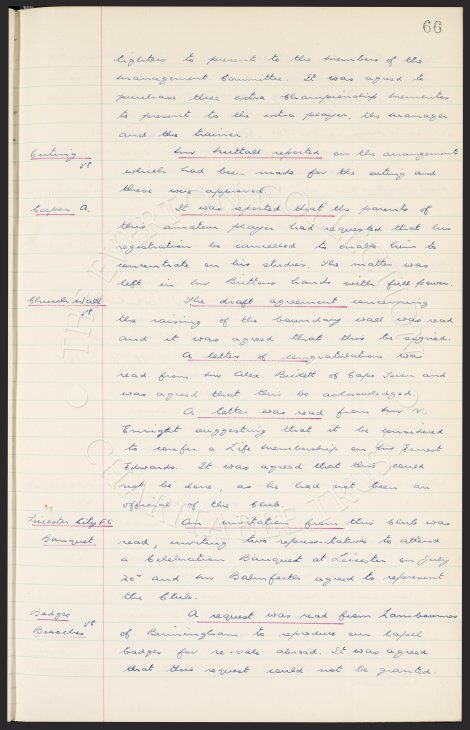 66
lighters to present to the members of the
management Committee. It was agreed to
purchase three extra Championship mementos
to present to the extra player, the manager
and the trainer.
Outing Mr Nuttall reported on the arrangements
which had been made for the outing and
these were approved.
Cooper A. It was reported that the parents of
this amateur player had requested that his
registration be cancelled to enable him to
concentrate on his studies. The matter was
left in Mr Buttons hands with full power.
Church Wall The draft agreement concerning
the raising of the boundary wall was read
and it was agreed that this be signed.
A letter of congratulations was
read from Mr Alex Beckett of Cape Town and
was agreed that this be acknowledged.
A letter was read from Mr V.
Enright suggesting that it be considered
to confer a Life membership on Mr Ernest
Edwards. It was agreed that this could
not be done, as he had not been an
official of the Club.
Leicester City F.C. An invitation from this Club was
Banquet read, inviting two representatives to attend
a Celebration Banquet at Leicester on July
20th and Mr Balmforth agreed to represent
the Club.
Badges A request was read from Lambournes
Brooches of Birmingham to reproduce our lapel
badges for re-sale abroad. It was agreed
that this request could not be granted.